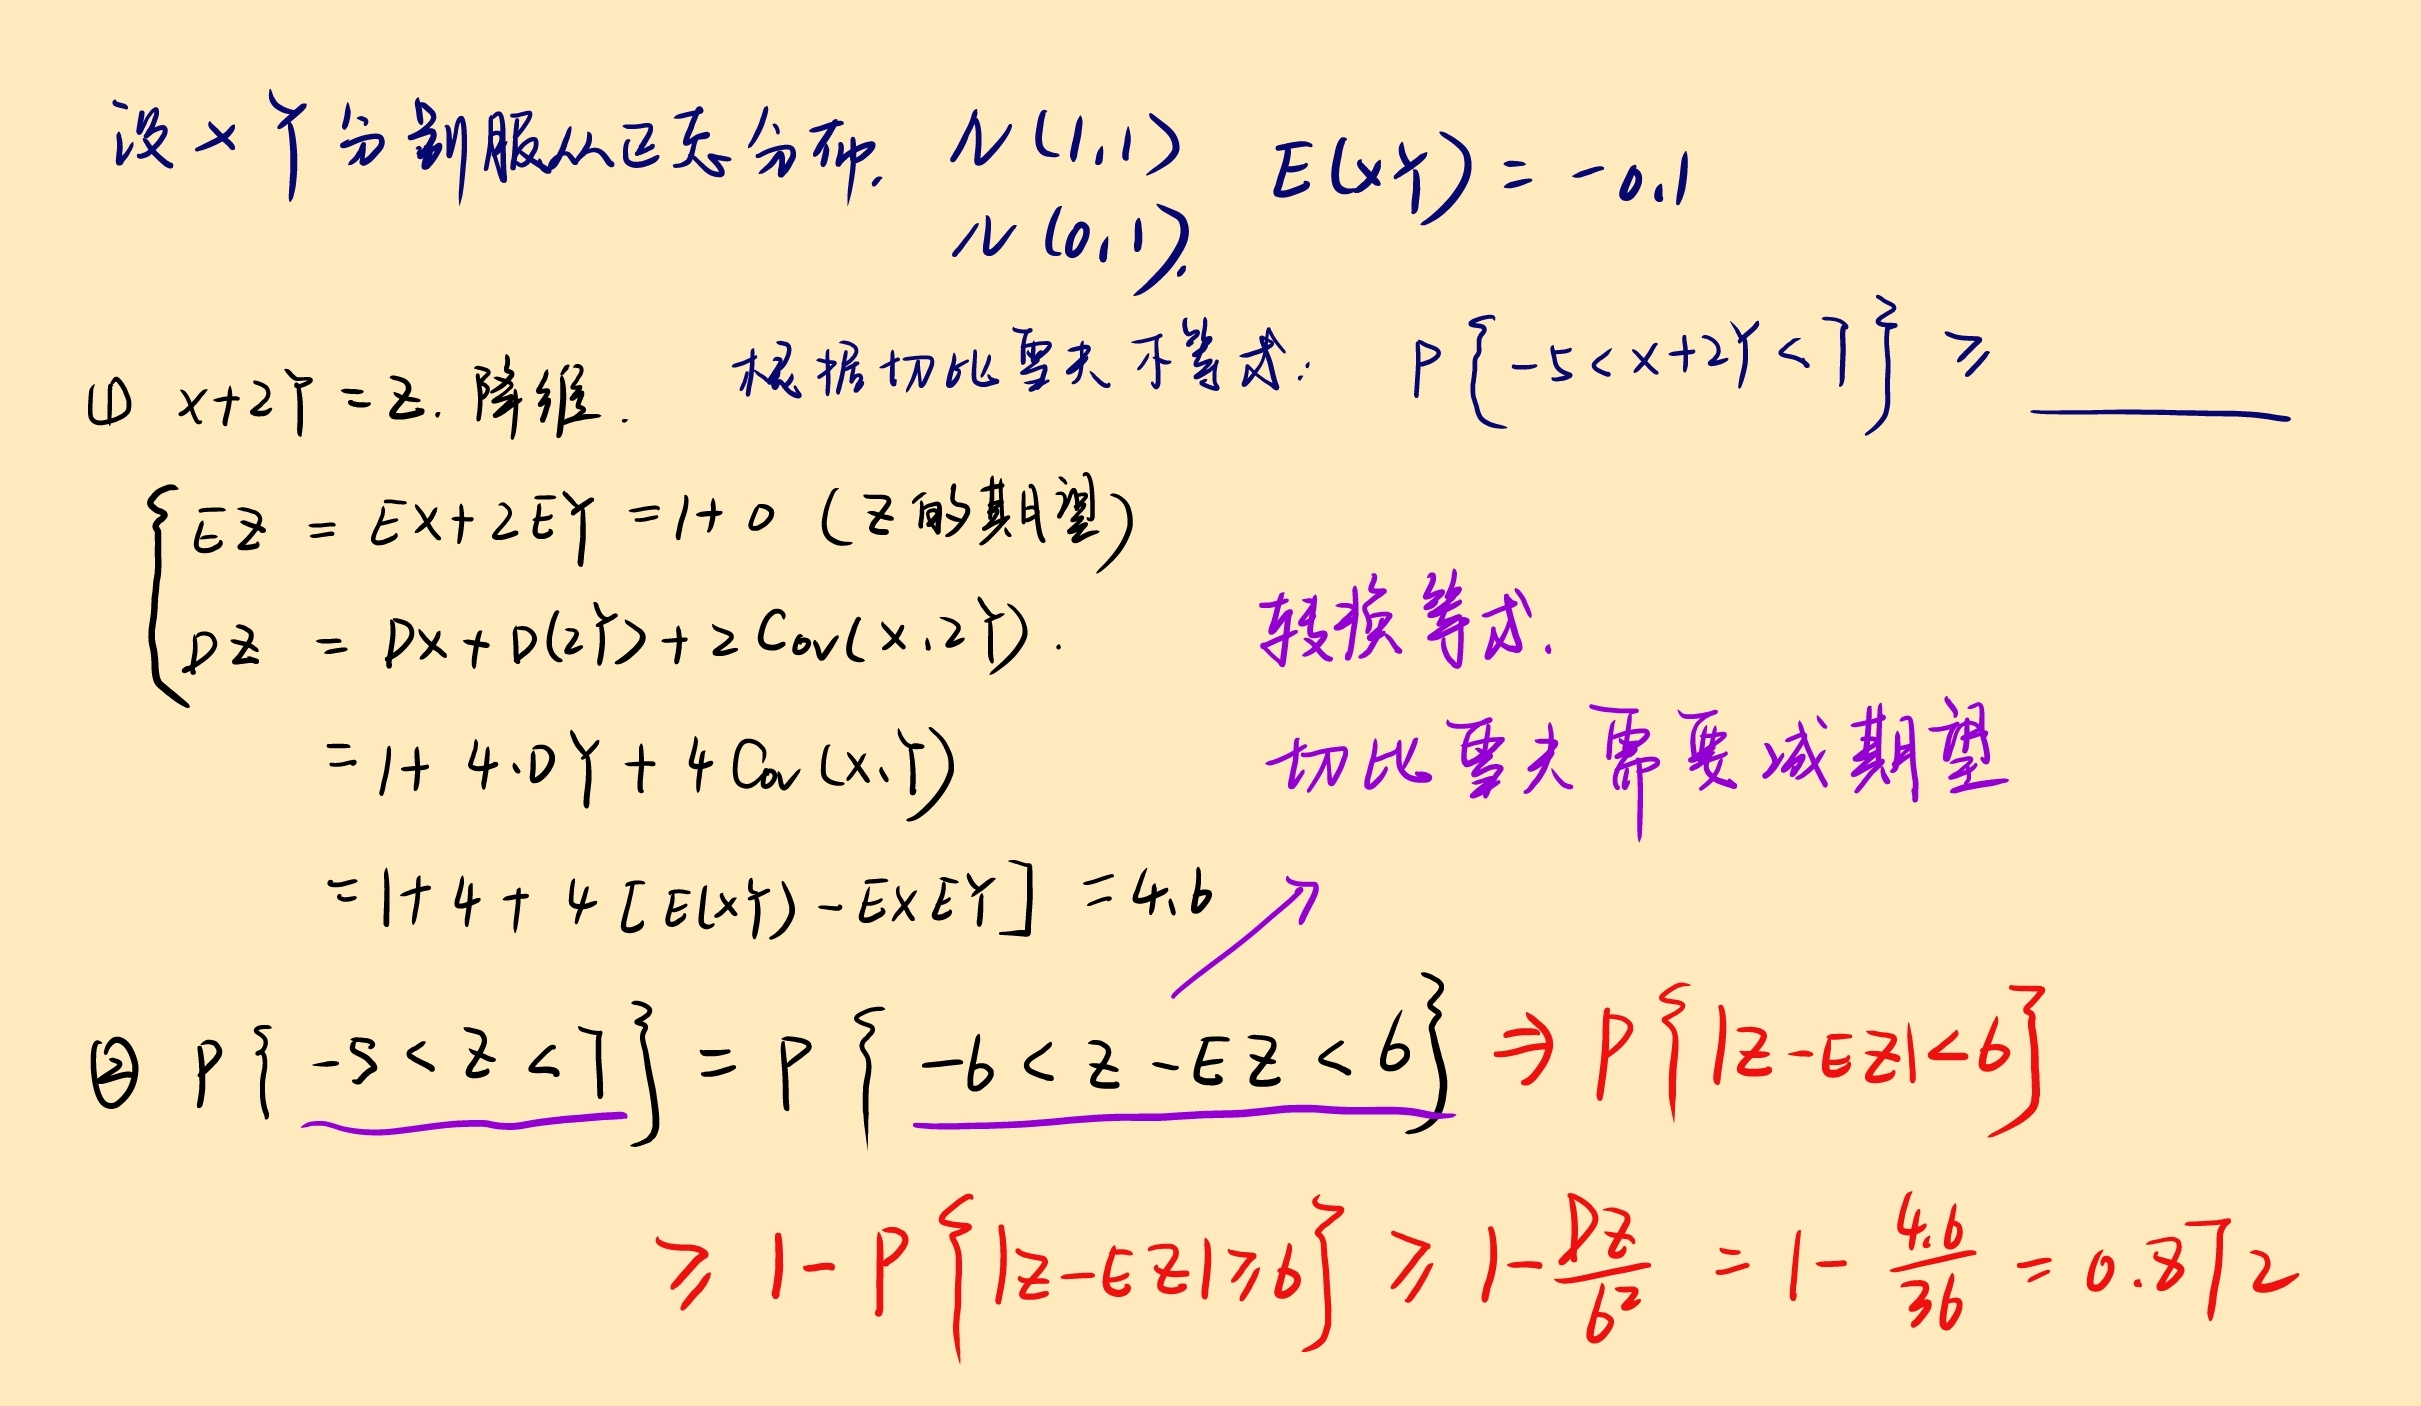 设 X Y 分别服从正态分布. N(1,1) E(XY) = -0.1
N(0,1).
根据切比雪夫不等式: P{-5<X+2Y<7} ≥ ____
① X+2Y = Z. 降维.
EZ = EX+2EY = 1+0 (Z的期望)
DZ = DX+D(2Y)+2Cov(X,2Y).
= 1+4·DY+4Cov(X,Y)
= 1+4+4[E(XY)-EXEY] = 4.6
转换等式.
切比雪夫需要减期望
② P{-5<Z<7} = P{-6<Z-EZ<6} ⇒ P{|Z-EZ|<6}
≥ 1-P{|Z-EZ|≥6} ≥ 1-DZ/6² = 1-4.6/36 = 0.872